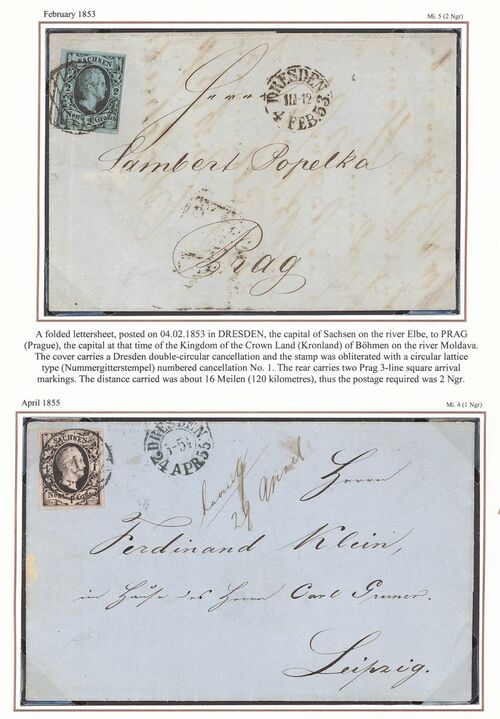 February 1853
Mi. 5 (2 Ngr)
SACHSEN
2 2
Neu 2 Grosch
DRESDEN
III-12
4 FEB. 53
Herrn
Lambert Popelka
Prag
A folded lettersheet, posted on 04.02.1853 in DRESDEN, the capital of Sachsen on the river Elbe, to PRAG
(Prague), the capital at that time of the Kingdom of the Crown Land (Kronland) of Böhmen on the river Moldava.
The cover carries a Dresden double-circular cancellation and the stamp was obliterated with a circular lattice
type (Nummergitterstempel) numbered cancellation No. 1. The rear carries two Prag 3-line square arrival
markings. The distance carried was about 16 Meilen (120 kilometres), thus the postage required was 2 Ngr.
April 1855
Mi. 4 (1 Ngr)
SACHSEN
DRESDEN
24 APR 55
Herrn
Ferdinand Klein,
im Hause des Herrn Carl
Leipzig.